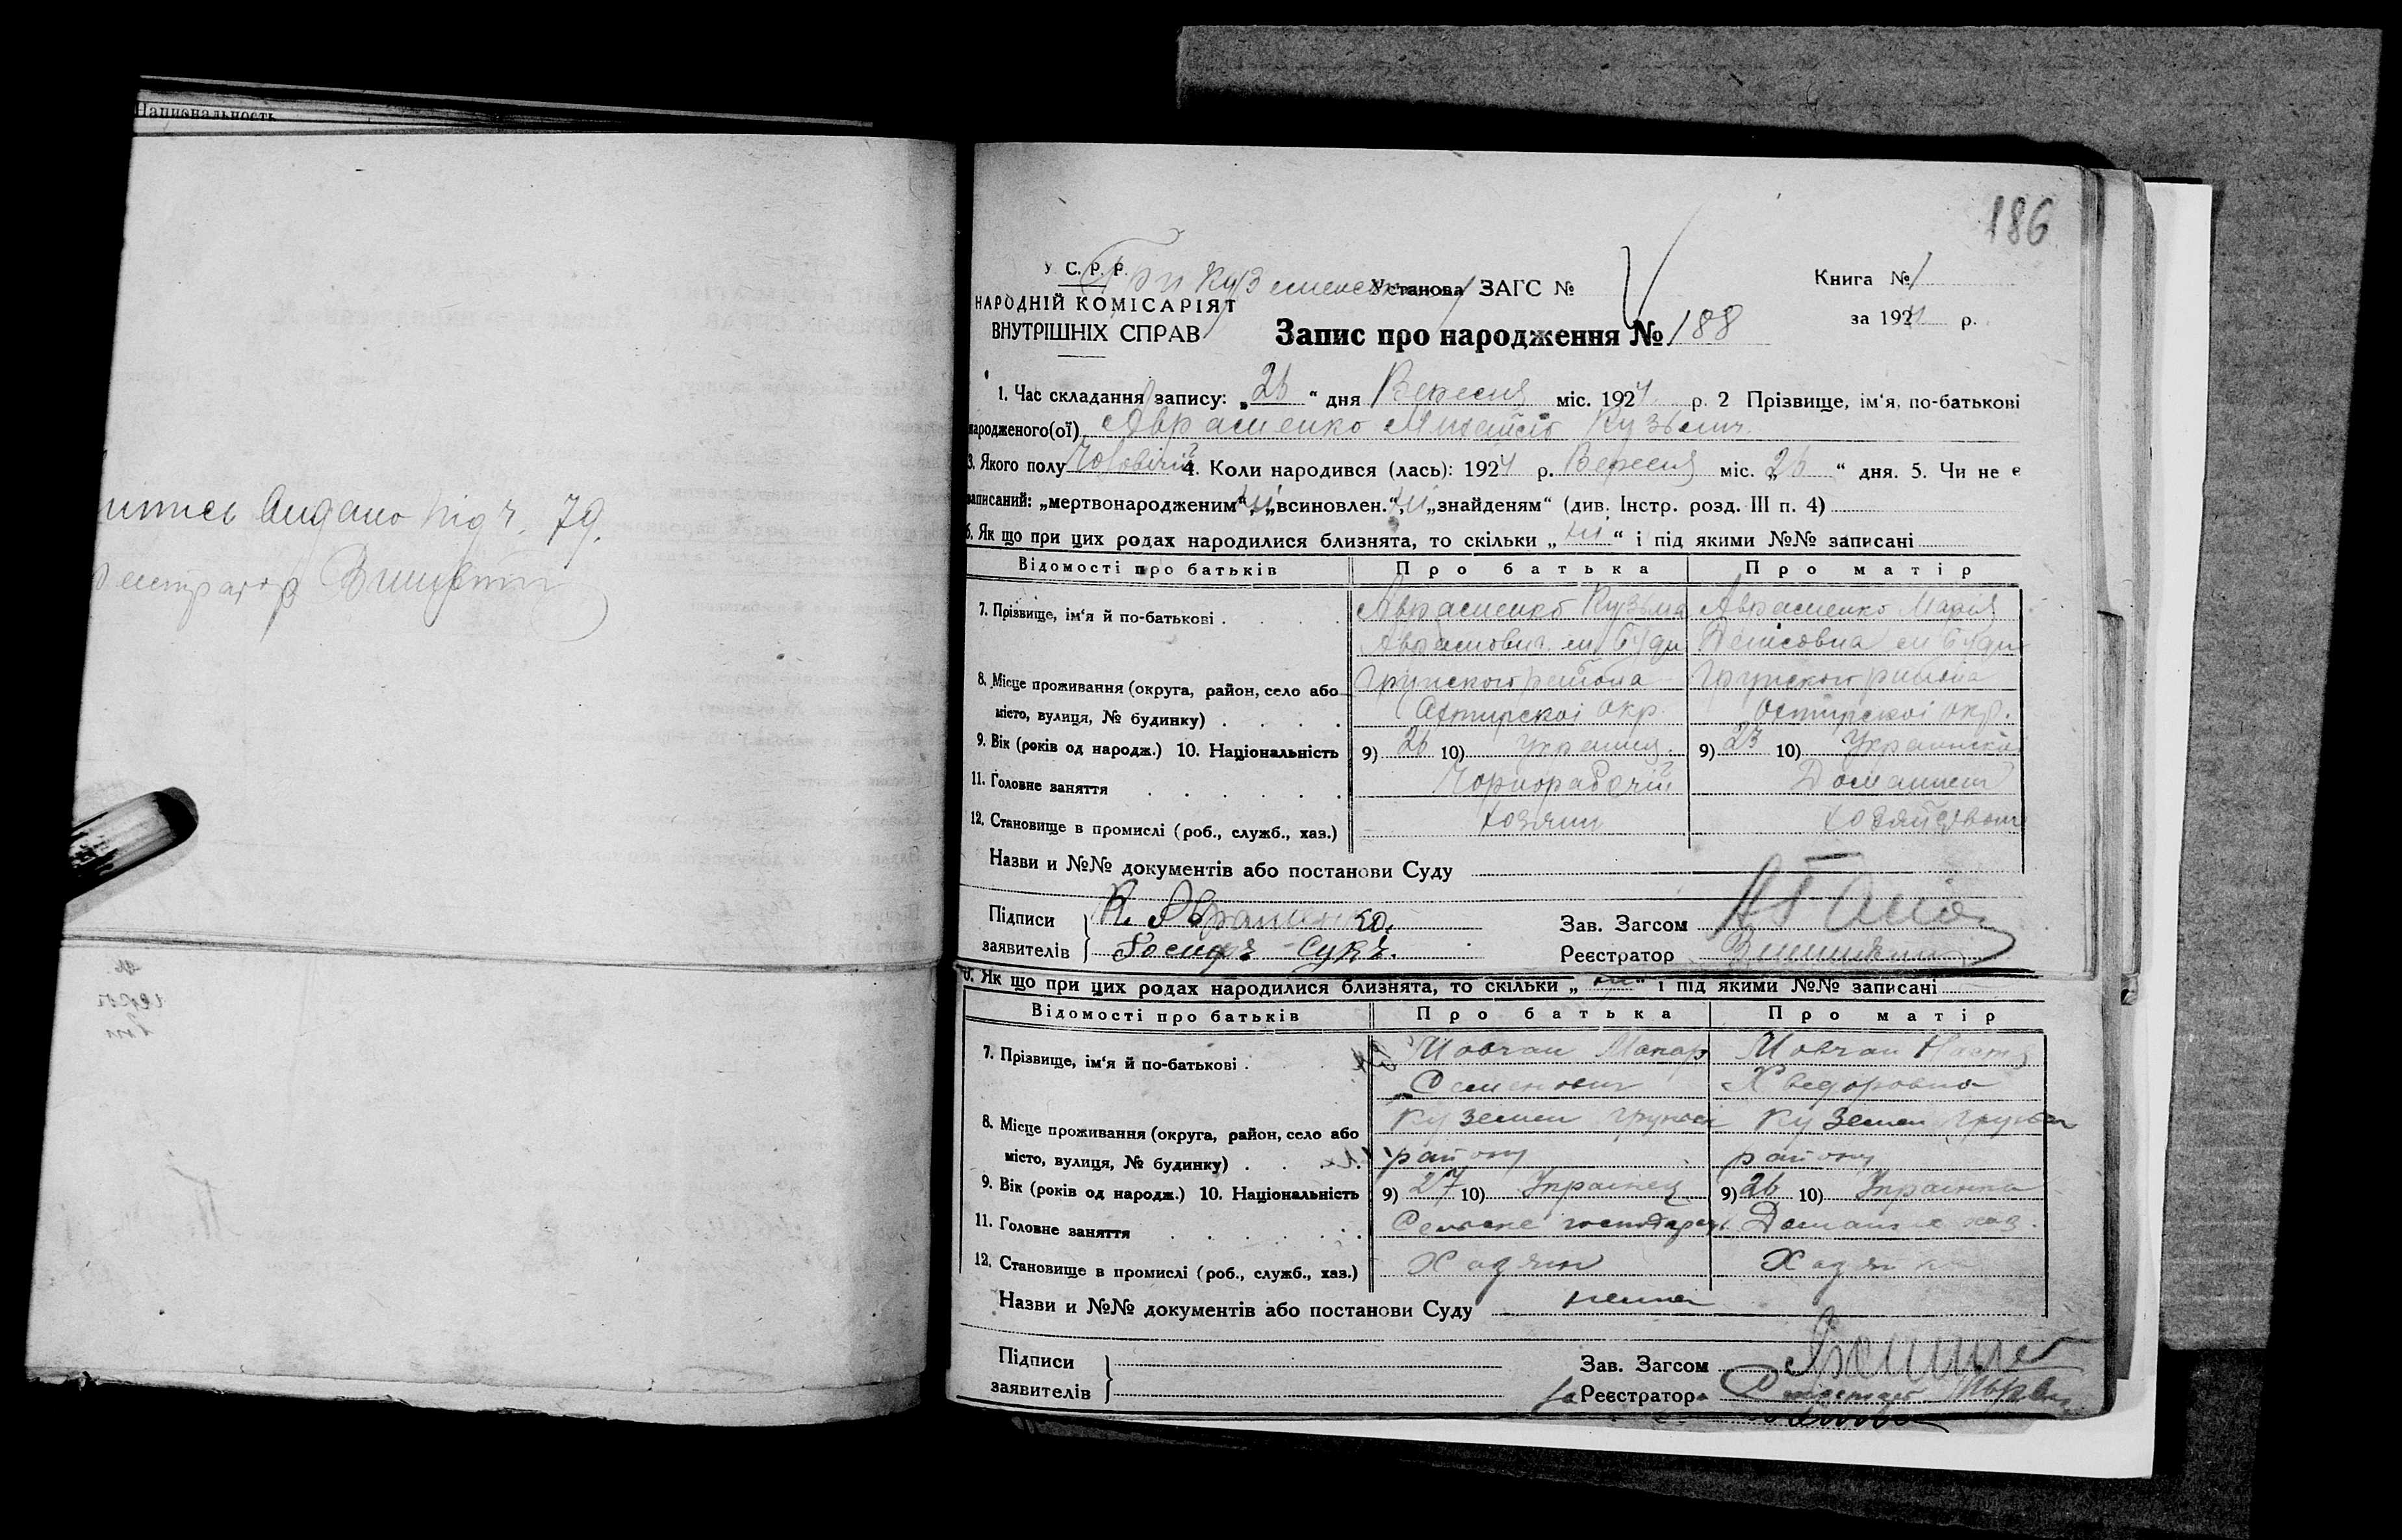 Национальность
видано під ч. 79.
186
У. С. Р. Р.
НАРОДНІЙ КОМІСАРІЯТ
ВНУТРІШНІХ СПРАВ
При Установа ЗАГС №
Книга № 1
за 1924 р.
Запис про народження № 188
1. Час складання запису: „26“ дня Вересня міс. 1924 р. 2 Прізвище, ім‘я, по-батькові
народженого(ої) Авраменко Кузьмич
3. Якого полу Чоловічій 4. Коли народився (лась): 1924 р. Вересня міс. „26“ дня. 5. Чи не є
записаний: „мертвонародженим“, ні „всиновлен.“, ні „знайденям“ (див. Інстр. розд. III п. 4)
6. Як що при цих родах народилися близнята, то скільки „ні“ і під якими №№ записані
Відомості про батьків Про батька Про матір
7. Прізвище, ім‘я й по-батькові . . . . Авраменко Кузьма Авраменко Марія
Аврамович Денісовна
8. Місце проживання (округа, район, село або Грунского района Грунского района
місто, вулиця, № будинку) . . . . Охтирскоі окр. Охтирскоі окр.
9. Вік (років од народж.) 10. Національність 9) 26 10) Украинец. 9) 23 10) Украинска
11. Головне заняття . . . . . . Чорнорабочій Домашнем
12. Становище в промислі (роб., служб., хаз.) хозяин хозяйством
Назви и №№ документів або постанови Суду
Підписи К. Авраменко. Зав. Загсом
заявителів Реєстратор
6. Як що при цих родах народилися близнята, то скільки „ні“ і під якими №№ записані
Відомості про батьків Про батька Про матір
7. Прізвище, ім‘я й по-батькові . Мовчан Макар Мовчан Настя
Семенович Хведоровна
8. Місце проживання (округа, район, село або Куземен Грунськ Куземен Грунськ
місто, вулиця, № будинку) . . . району району
9. Вік (років од народж.) 10. Національність 9) 27 10) Украінец 9) 26 10) Украінка
11. Головне заняття . . . . . . Сельське господарст. Домашне хаз.
12. Становище в промислі (роб., служб., хаз.) Хадяін
Назви и №№ документів або постанови Суду нема
Підписи Зав. Загсом
заявителів За Реєстратора